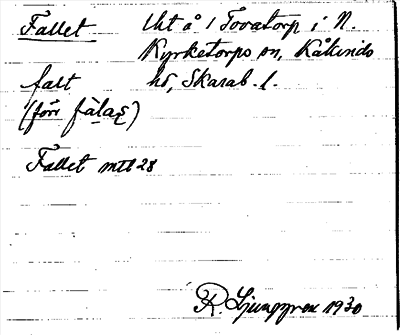 Fallet Uht å 1 Tovatorp i N.
Kyrketorps sn, Kåkinds
falt hd, Skarab. l.
(förr fälas)
Fallet mtl 28
R. Ljunggren 1930